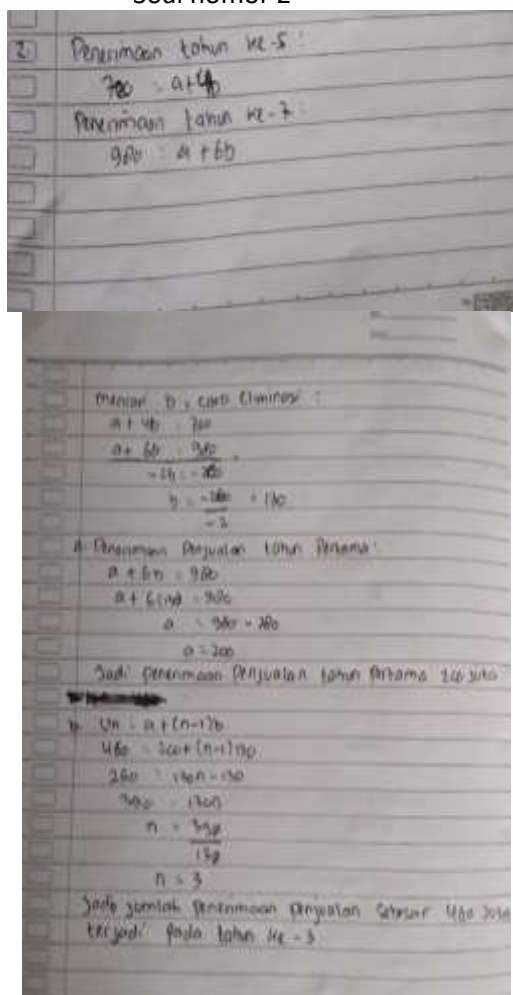 Soal nomor 2
2. Penerimaan tahun ke-5 :
720 = a+4b
Penerimaan tahun ke-7 :
980 = a + 6b
mencari b, cara eliminasi :
a + 4b = 720
a + 6b = 980 -
-2b = -260
b = -260 = 130
-2
a. Penerimaan Penjualan tahun Pertama :
a + 6b = 980
a + 6(130) = 980
a = 980 - 780
a = 200
Jadi penerimaan penjualan tahun pertama 200 juta
b. Un = a + (n-1)b
460 = 200 + (n-1)130
260 = 130n - 130
390 = 130n
n = 390
130
n = 3
Jadi jumlah penerimaan penjualan sebesar 460 juta
terjadi pada tahun ke - 3